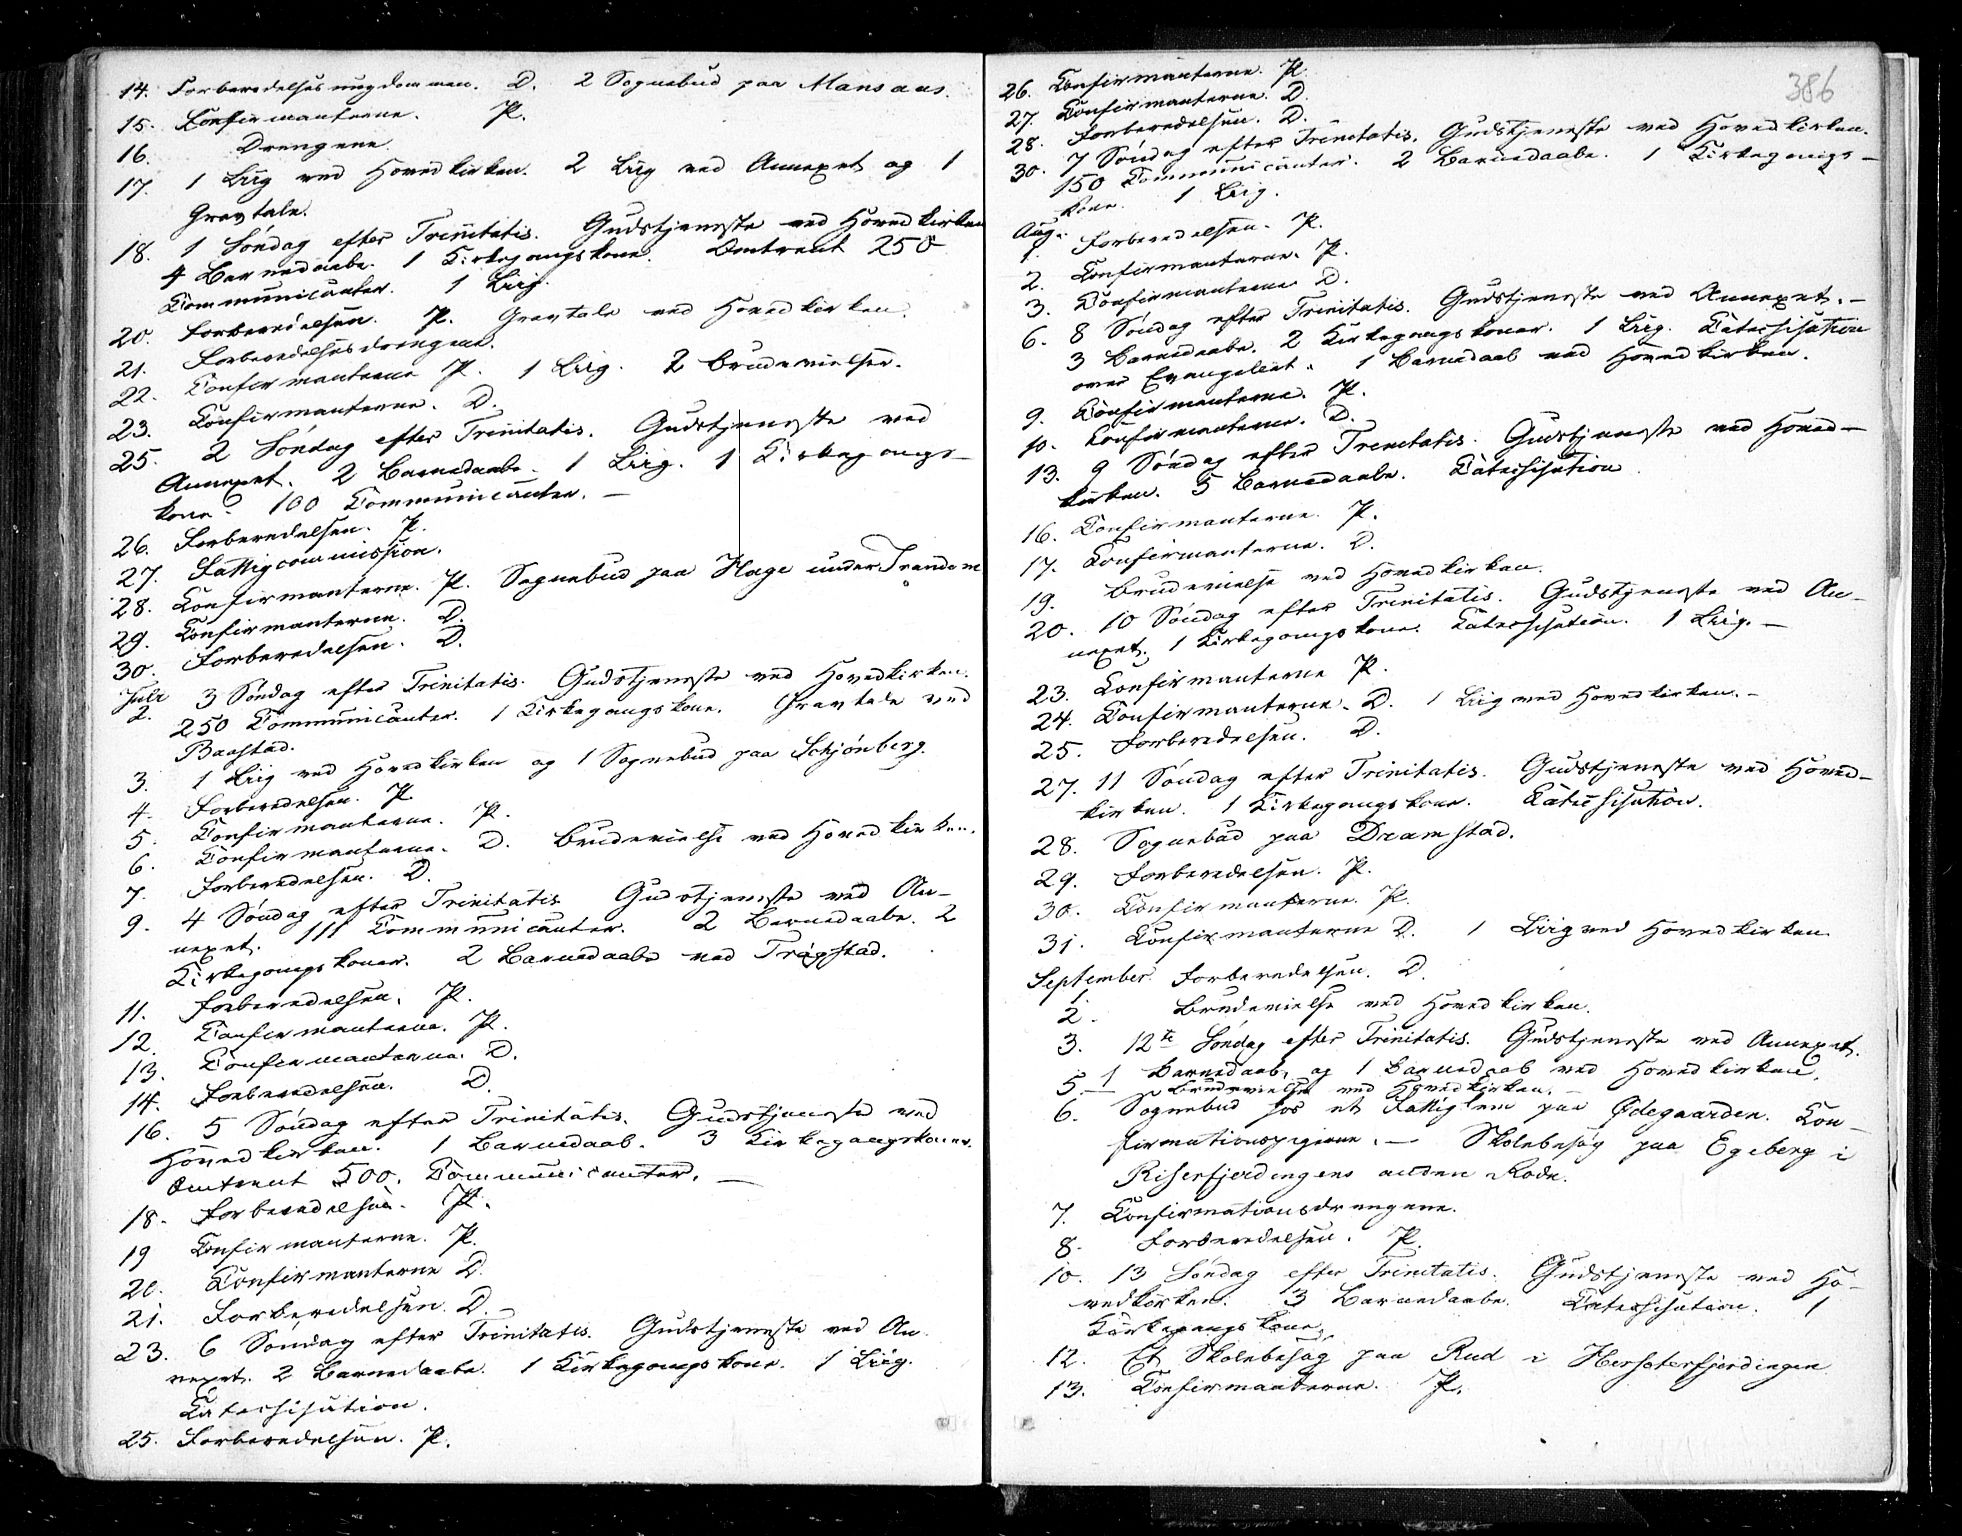 14. Forberedelsesungdommen. D. 2 Sognebud paa Mansaas.
15. Confirmanterne. P.
16. Drengene.
17. 1 Liig ved Hovedkirken. 2 Liig ved Annexet og 1
Gravtale.
18. 1 Søndag efter Trinitatis. Gudstjeneste ved Hovedkirken
4 Barnedaabe. 1 Kirkegangskone. Omtrent 250
Communicanter. 1 Liig.
20. Forberedelsen. P. Gravtale ved Hovedkirken.
21. Forberedelsesdrengene.
22. Confirmanterne P. 1 Liig. 2 Brudevielser.
23. Confirmanterne. D.
25. 2 Søndag efter Trinitatis. Gudstjeneste ved
Annexet. 2 Barnedaabe. 1 Liig. 1 Kirkegangs-
kone. 100 Communicanter. —
26. Forberedelsen. P.
27. Fattigcommission.
28. Confirmanterne. P. Sognebud paa Hage under Trandem
29. Confirmanterne. D.
30. Forberedelsen. D.
Juli
2. 3 Søndag efter Trinitatis. Gudstjeneste ved Hovedkirken.
250 Communicanter. 1 Kirkegangskone. Gravtale ved
Baastad.
3. 1 Liig ved Hovedkirken og 1 Sognebud paa Schjønberg.
4. Forberedelsen. P.
5. Confirmanterne. P.
6. Confirmanterne. D. Brudevielse ved Hovedkirken.
7. Forberedelsen. D.
9. 4 Søndag efter Trinitatis Gudstjeneste ved An-
nexet. 111 Communicanter. 2 Barnedaabe. 2
Kirkegangskoner. 2 Barnedaabe ved Trøgstad.
11. Forberedelsen. P.
12. Confirmanterne. P.
13. Confirmanterne. D.
14. Forberedelsen. D.
16. 5 Søndag efter Trinitatis. Gudstjeneste ved
Hovedkirken. 1 Barnedaab. 3 Kirkegangskoner.
Omtrent 500. Communicanter. —
18. Forberedelsen. P.
19 Confirmanterne. P.
20. Confirmanterne D.
21. Forberedelsen. D.
23. 6 Søndag efter Trinitatis. Gudstjeneste ved An-
nexet. 2 Barnedaabe. 1 Kirkegangskone. 1 Liig.
Catechisation.
25. Forberedelsen. P.
386
26. Confirmanterne. P.
27. Confirmanterne. D.
28. Forberedelsen. D.
30. 7 Søndag efter Trinitatis. Gudstjeneste ved Hovedkirken.
150 Communicanter. 2 Barnedaabe. 1 Kirkegangs-
kone. 1 Liig.
Aug.
1. Forberedelsen. P.
2. Confirmanterne. P.
3. Confirmanterne D.
6. 8 Søndag efter Trinitatis. Gudstjeneste ved Annexet. —
3 Barnedaabe. 2 Kirkegangskoner. 1 Liig. Catechisation
over Evangeliet. 1 Barnedaab ved Hovedkirken.
9. Confirmanterne. P.
10. Confirmanterne. D.
13. 9 Søndag efter Trinitatis. Gudstjeneste ved Hoved-
kirken. 5 Barnedaabe. Catechisation
16. Confirmanterne. P.
17. Confirmanterne. D.
19. Brudevielse ved Hovedkirken.
20. 10 Søndag efter Trinitatis. Gudstjeneste ved An-
nexet. 1 Kirkegangskone. Catechisation. 1 Liig. —
23. Confirmanterne P.
24. Confirmanterne. D. 1 Liig ved Hovedkirken. —
25. Forberedelsen. D.
27. 11 Søndag efter Trinitatis. Gudstjeneste ved Hoved-
kirken. 1 Kirkegangskone. Catechisation.
28. Sognebud paa Dramstad.
29. Forberedelsen. P.
30. Confirmanterne. P.
31. Confirmanterne D. 1 Liig ved Hovedkirken
September
1. Forberedelsen. D.
2. Brudevielse ved Hovedkirken.
3. 12te Søndag efter Trinitatis. Gudstjeneste ved Annexet.
1 Barnedaab, og 1 Barnedaab ved Hovedkirken.
5. — Brudevielse ved Hovedkirken. —
6. Sognebud hos et Fattiglem paa Ødegaarden. Con-
firmationspigerne. — Skolebesøg paa Egeberg i
Riserfjerdingens anden Rode.
7. Confirmationsdrengene.
8. Forberedelsen. P.
10. 13 Søndag efter Trinitatis. Gudstjeneste ved Ho-
vedkirken. 3 Barnedaabe. Catechisation. 1
Kirkegangskone.
12. Et Skolebesøg paa Rud i Hersæterfjerdingen
13. Confirmanterne. P.